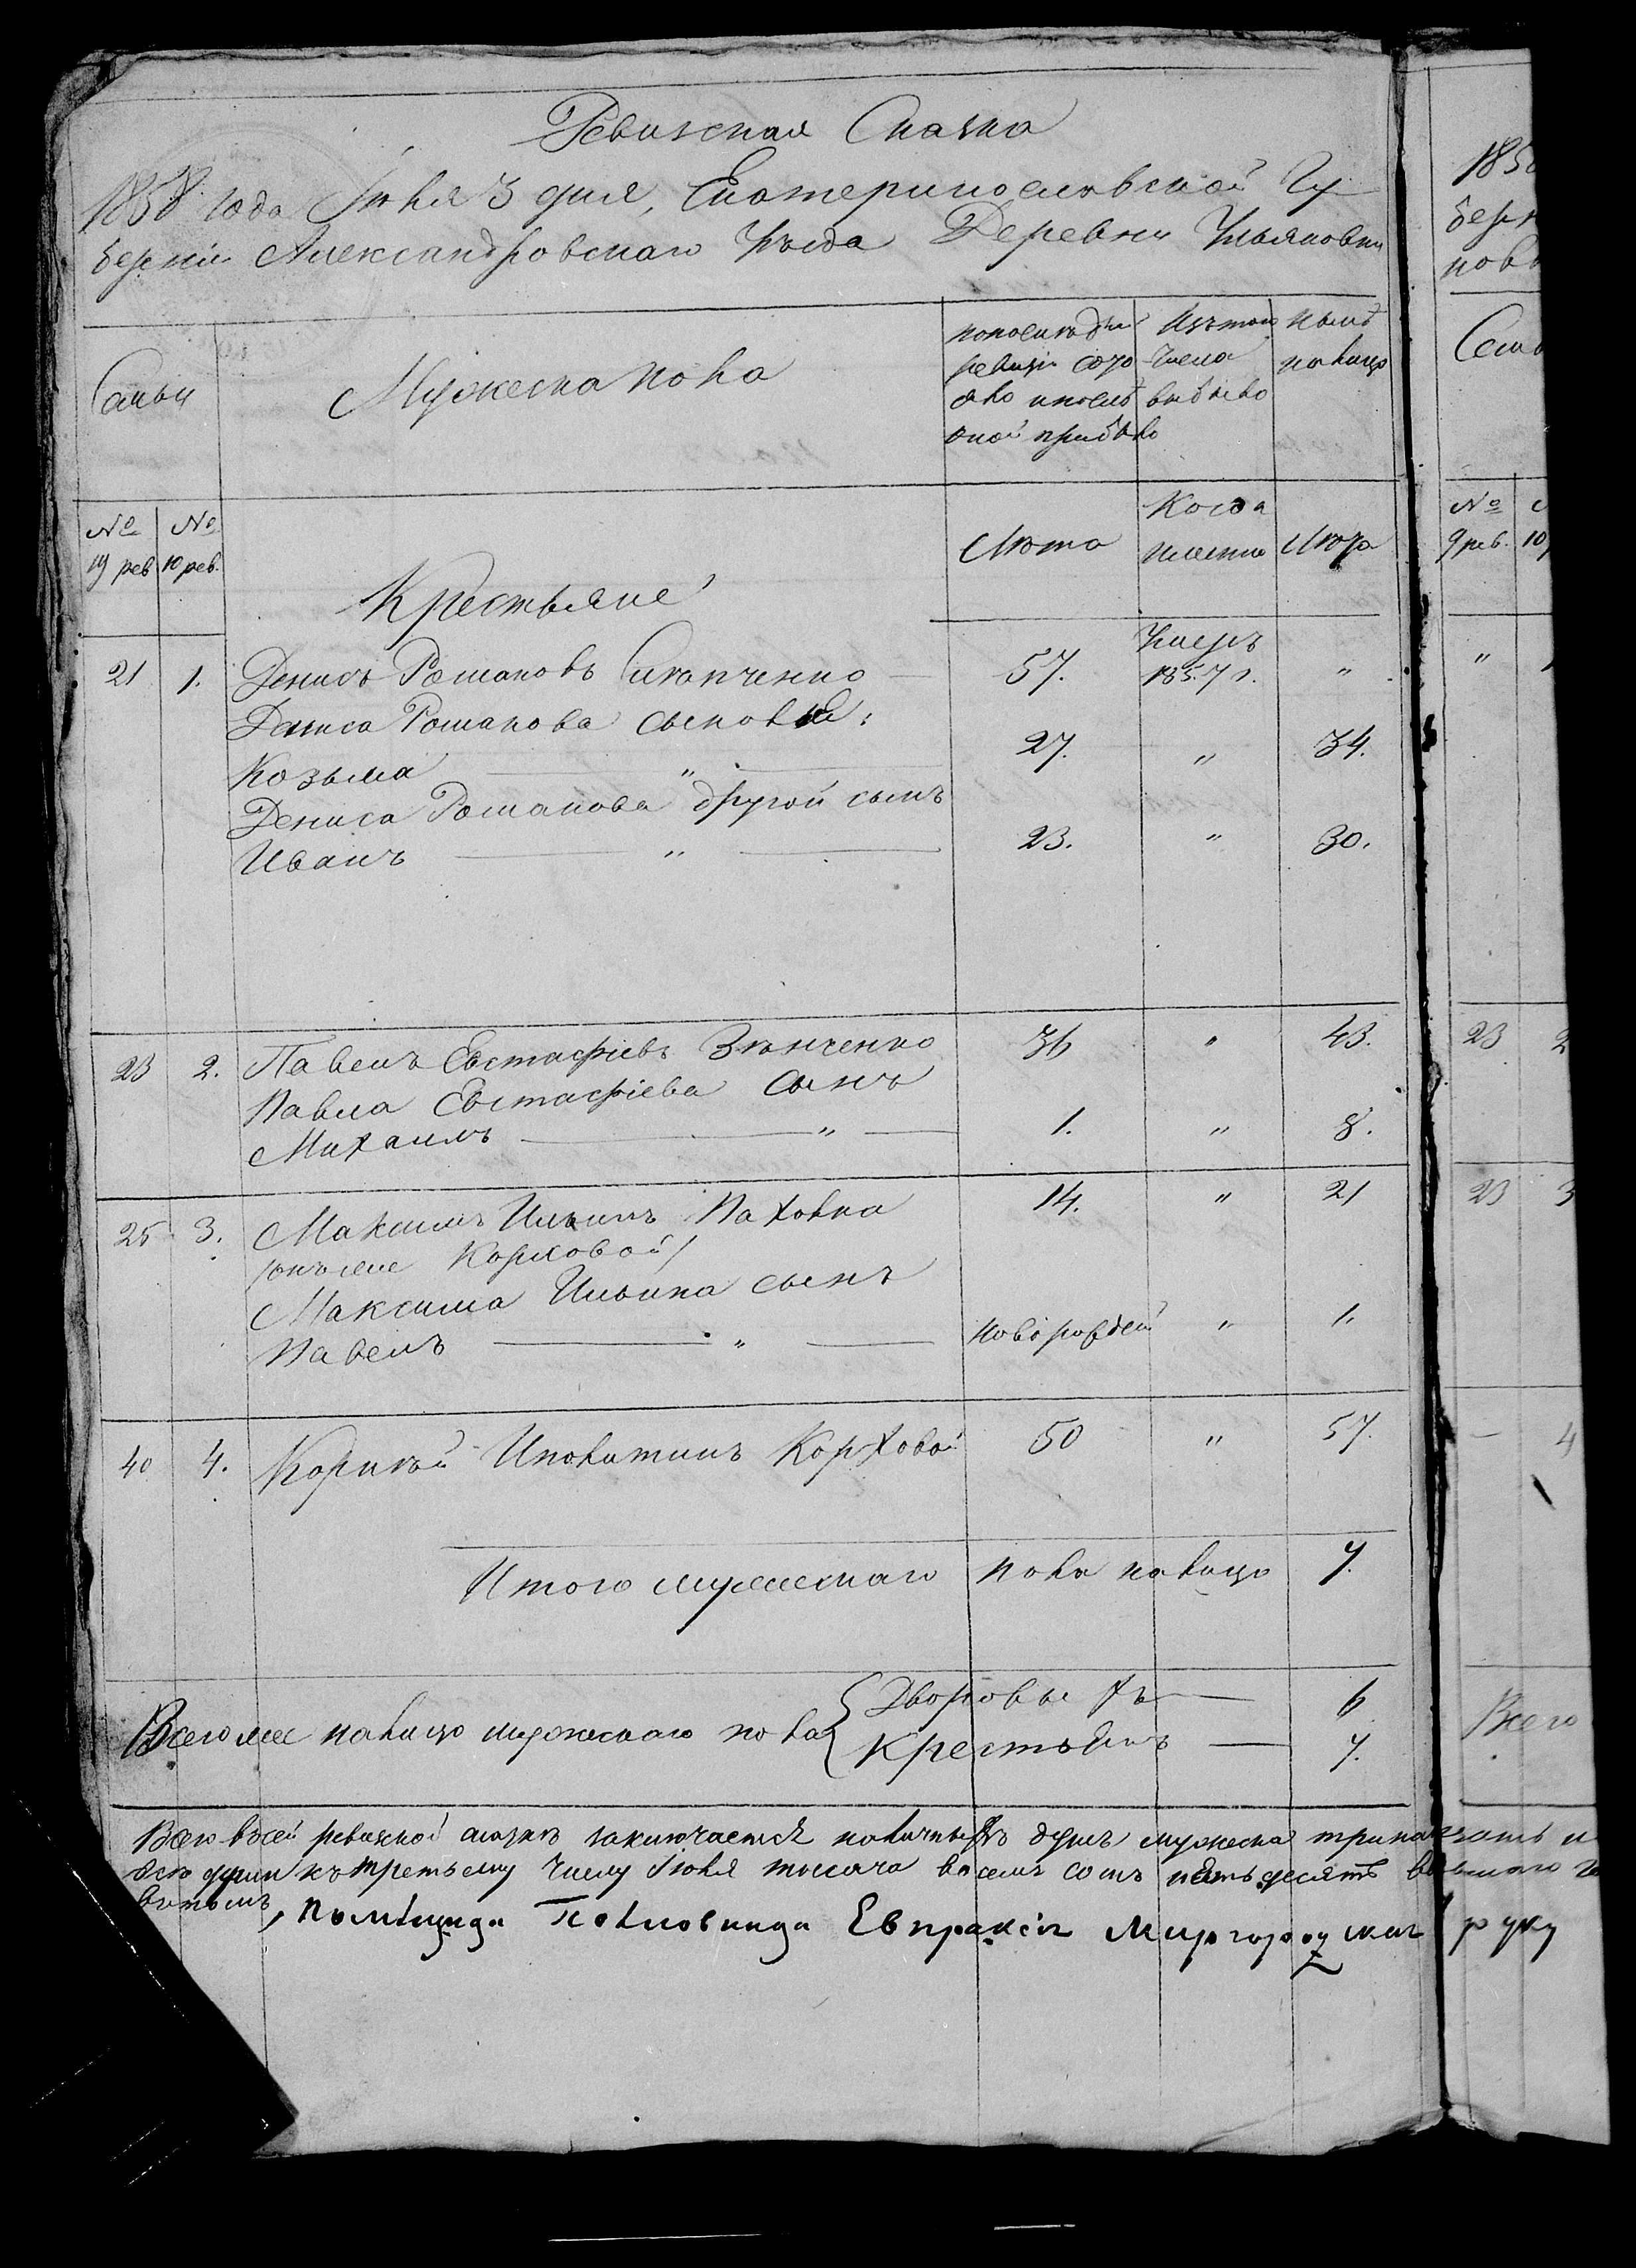 Ревизская Сказка
1858 года Іюля 3 дня, Екатеринославской Гу
берніи Александровскаго Уѣзда Деревни Ульяновки
Семьи
Мужеска пола
по последней
ревизіи состо
яло и послѣ
оной прибыло
Изъ того
числа
выбыло
Нынѣ
налицо
№
9 рев
№
10 рев.
Лѣта
Когда
именно
Лѣта
Крестьяне
21 1. Денисъ Романовъ 57. Умеръ 1857 г. "
Дениса Романова сыновья:
Козьма " 27. " 34.
Дениса Романова другой сынъ
Иванъ " 23. " 30.
23 2. Павелъ Евстафіевъ Зѣнченко 36 " 43.
Павла Евстафіева сынъ
Михаилъ " 1. " 8.
25 3. Максимъ Ильинъ Паховка 14. " 21
Максима Ильина сынъ
Павелъ " " 1.
40 4. Корнѣй Иполитинъ Корховой 50 " 57.
Итого мужескаго пола налицо 7.
Всего же налицо мужескаго пола { Дворовыхъ 6
Крестьянъ 7.
Всего в сей ревизской сказкѣ заключается наличныхъ душъ мужеска тринадцать и
къ третьему числу Іюля тысяча восемь сотъ пятьдесятъ
Евпраксія руку
1858
берн
нов
Семь
№
9 рев.
10
" 
23 2
23 3
— 4
Всего